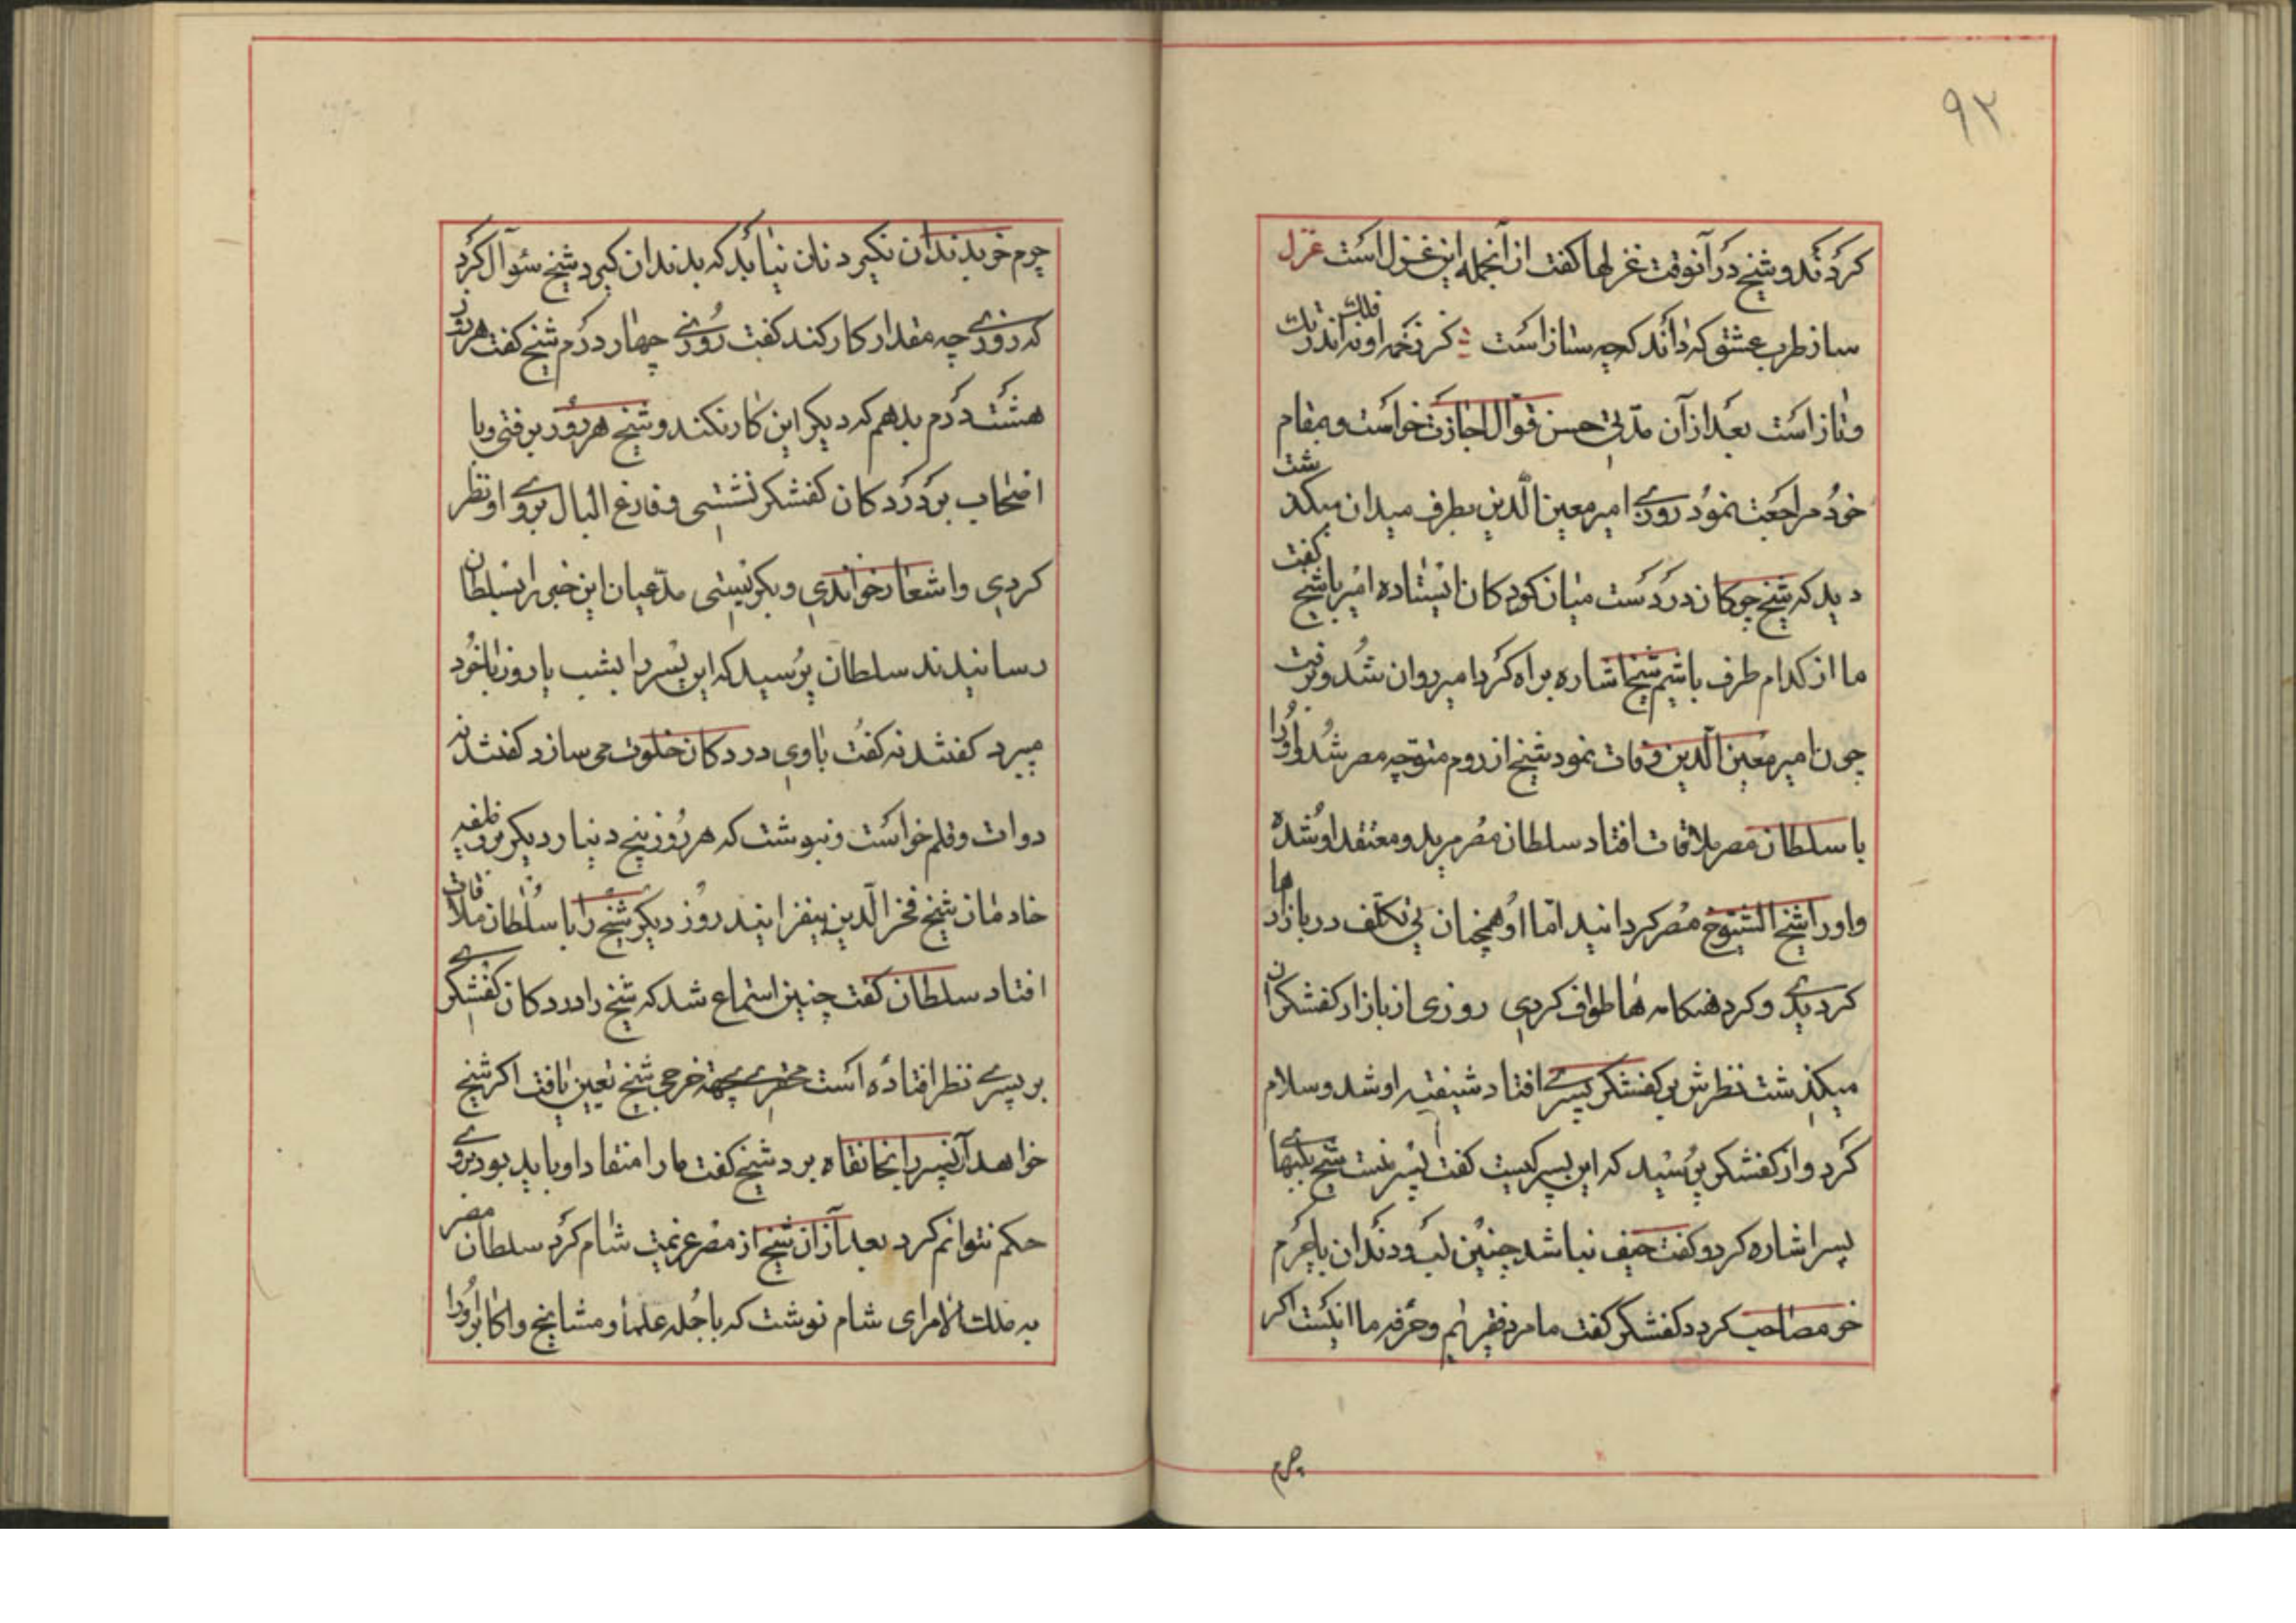 ۹۲
کردند و شیخ در آنوقت غزلها کفت از آنجمله این غزل است غزل
ساز طرب عشق که داند که چه ساز است کز زخمه او نه فلک اندر تک
و تاز است بعد از آن مدتی حسن قوال اجازت خواست و بمقام
خود مراجعت نمود روزی امیر معین الدین بطرف میدان میکذشت
دید که شیخ چوکان در دست میان کودکان ایستاده امیر با شیخ کفت
ما از کدام طرف باشیم شیخ اشاره براه کرد امیر روان شد و برفت
چون امیر معین الدین وفات نمود شیخ از روم متوجه مصر شد و او را
با سلطان مصر ملاقات افتاد سلطان مصر مرید و معتقد او شده
و او را شیخ الشیوخ مصر کردانید اما او همچنان بی تکلف در بازارها
کردیدی و کرد هنکامه ها طواف کردی روزی از بازار کفشکران
میکذشت نظرش بر کفشکر پسری افتاد شیفته او شد و سلام
کرد و از کفشکر پرسید که این پسر کیست کفت پسر منست شیخ بلبهای
پسر اشاره کرد و کفت حیف نباشد چنین لب و دندان با چرم
خر مصاحب کردد کفشکر کفت ما مرد فقیریم و حرفه ما اینست اکر
چرم
چرم خر بدندان نکیرد نان نیابد که بدندان کیرد شیخ سئوال کرد
که روزی چه مقدار کار کند کفت روزی چهار درم شیخ کفت هر روز
هشت درم بدهم که دیکر این کار نکند و شیخ هر روز برفتی و با
اصحاب بر در دکان کفشکر نشستی و فارغ البال بروی او نظر
کردی و اشعار خواندی و بکریستی مدعیان این خبر را بسلطان
رسانیدند سلطان پرسید که این پسر را بشب یا روز با خود
میبرد کفتند نه کفت با وی در دکان خلوت می سازد کفتند نه
دوات و قلم خواست و نبوشت که هر روز پنج دینار دیکر بر وظیفه
خادمان شیخ فخر الدین بیفزایند روز دیکر شیخ را با سلطان ملاقات
افتاد سلطان کفت چنین استماع شد که شیخ را در دکان کفشکری
بر پسری نظر افتاده است محقری بجهة خرجی شیخ تعیین یافت اکر شیخ
خواهد آن پسر را بخانقاه برد شیخ کفت ما را منقاد او باید بود بروی
حکم نتوانم کرد بعد از آن شیخ از مصر عزیمت شام کرد سلطان مصر
به ملک الامرای شام نوشت که با جمله علما و مشایخ و اکابر او را